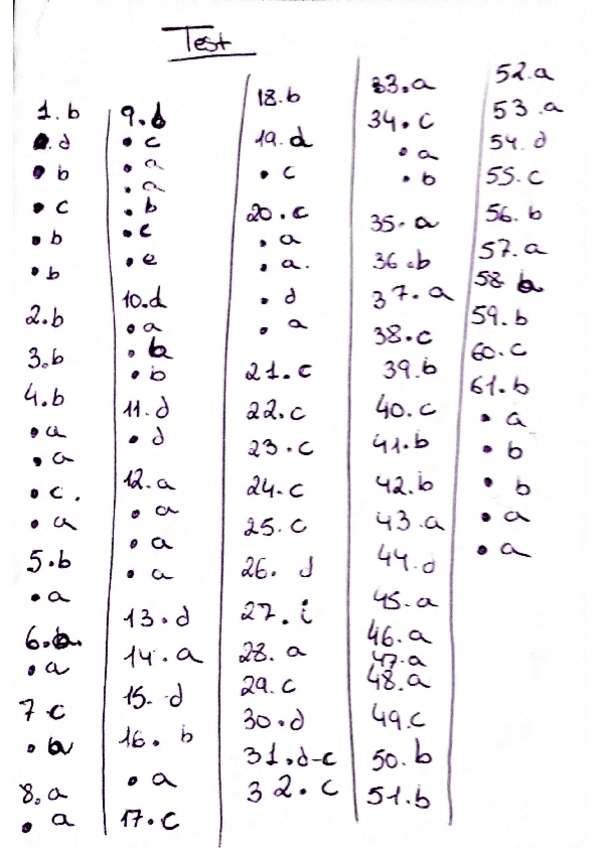 Test
1.b
•.d
• b
• c
• b
• b
2.b
3.b
4.b
• a
• a
• c.
• a
5.b
• a
6.b.
• a
7 c
• a
8.a
• a
9.b
• c
• a
• a
• b
• c
• e
10.d
• a
• b
• b
11.d
• d
12.a
• a
• a
• a
13.d
14.a
15. d
16. b
• a
17.c
18.b
19.d
• c
20.c
• a
• a.
• d
• a
21.c
22.c
23.c
24.c
25.c
26. d
27.i
28.a
29.c
30.d
31.d-c
32.c
33.a
34.c
• a
• b
35.a
36.b
37.a
38.c
39.b
40.c
41.b
42.b
43.a
44.d
45.a
46.a
47.a
48.a
49.c
50.b
51.b
52.a
53.a
54.d
55.c
56.b
57.a
58
59.b
60.c
61.b
• a
• b
• b
• a
• a